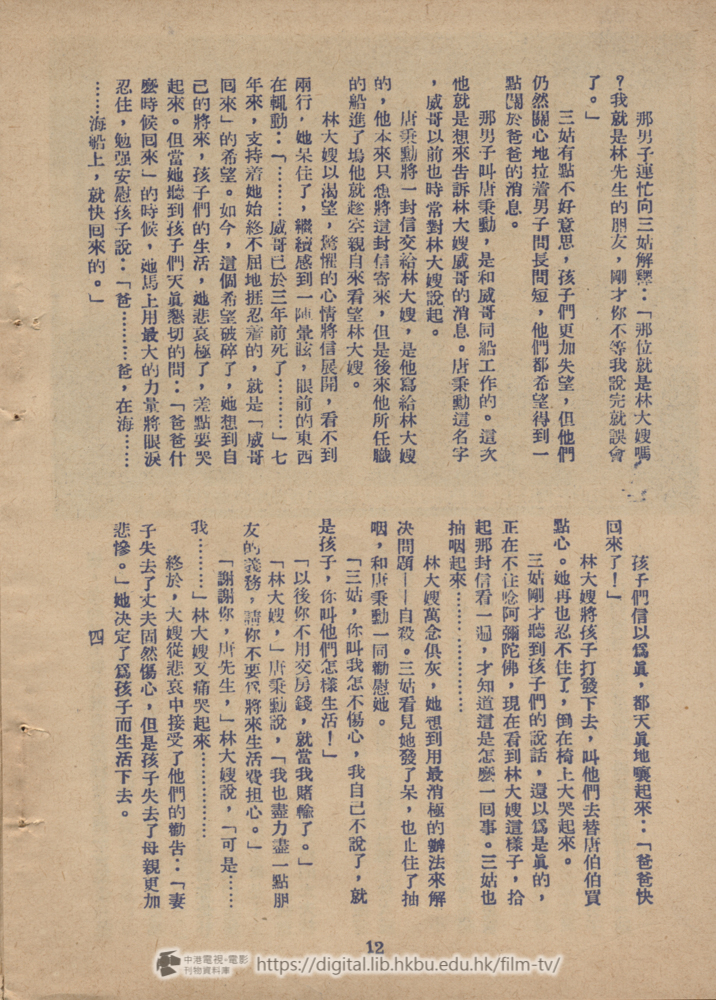 那男子連忙向三姑解釋：「那位就是林大嫂嗎
？我就是林先生的朋友，剛才你不等我說完就誤會
了。」
三姑有點不好意思，孩子們更加失望，但他們
仍然關心地拉着男子問長問短，他們都希望得到一
點關於爸爸的消息。
那男子叫唐秉勳，是和威哥同船工作的。這次
他就是想來告訴林大嫂威哥的消息。唐秉勳這名字
，威哥以前也時常對林大嫂說起。
唐秉勳將一封信交給林大嫂，是他寫給林大嫂
的，他本來只想將這封信寄來，但是後來他所任職
的船進了塢他就趁空親自來看望林大嫂。
林大嫂以渴望，驚惶的心情將信展開，看不到
兩行，她呆住了，繼續感到一陣暈眩，眼前的東西
在輒動：「………威哥已於三年前死了………」七
年來，支持着她始終不屈地捱忍着的，就是「威哥
回來」的希望。如今，這個希望破碎了，她想到自
己的將來，孩子們的生活，她悲哀極了，差點要哭
起來。但當她聽到孩子們天眞懇切的問：「爸爸什
麼時候回來」的時候，她馬上用最大的力量將眼淚
忍住，勉强安慰孩子說：「爸………爸，在海……
……海船上，就快回來的。」
孩子們信以爲眞，都天眞地嚷起來：「爸爸快
回來了！」
林大嫂將孩子打發下去，叫他們去替唐伯伯買
點心。她再也忍不住了，倒在椅上大哭起來。
三姑剛才聽到孩子們的說話，還以爲是眞的，
正在不住唸阿彌陀佛，現在看到林大嫂這樣子，拾
起那封信看一遍，才知道這是怎麽一回事。三姑也
抽咽起來………………
林大嫂萬念俱灰，她想到用最消極的辦法來解
决問題——自殺。三姑看見她發了呆，也止住了抽
咽，和唐秉勳一同勸慰她。
「三姑，你叫我怎不傷心，我自己不說了，就
是孩子，你叫他們怎樣生活！」
「以後你不用交房錢，就當我賭輸了。」
「林大嫂，」唐秉勳說，「我也盡力盡一點朋
友的義務，請你不要爲將來生活費担心。」
「謝謝你，唐先生，」林大嫂說，「可是……
我………」林大嫂又痛哭起來………………
終於，大嫂從悲哀中接受了他們的勸告：「妻
子失去了丈夫固然傷心，但是孩子失去了母親更加
悲慘。」她决定了爲孩子而生活下去。
四
12
中港電視‧電影
刊物資料庫
https://digital.lib.hkbu.edu.hk/film-tv/